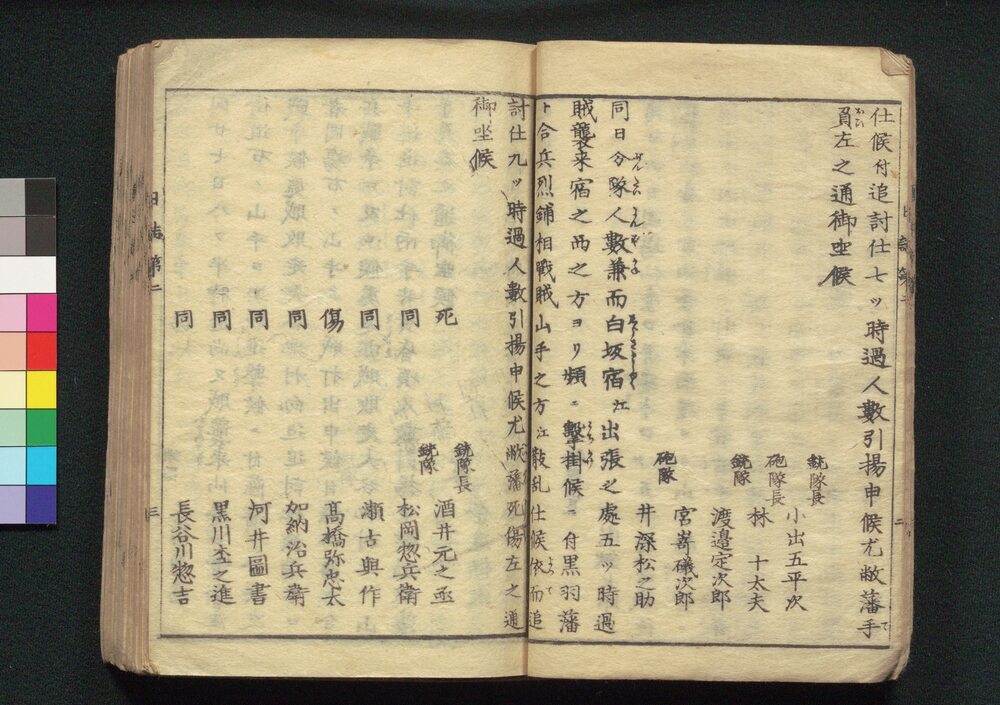 仕候付追討仕七ツ時過人數引揚申候尤敝藩手
負左之通御坐候
銃隊長 小出五平次
砲隊長 林 十太夫
銃隊 渡邉定次郎
宮嵜礒次郎
砲隊 井深松之助
同日分隊人數兼而白坂宿江出張之處五ツ時過
賊襲来宿之西之方ヨリ頻ニ擊掛候ニ付黒羽藩
ト合兵烈鋪相戰賊山手之方江散乱仕候依而追
討仕九ツ時過人數引揚申候尤敝藩死傷左之通
御坐候
死 銃隊長 酒井元之丞
同 銃隊 松岡惣兵衛
同 瀬古與作
傷 髙橋弥忠太
同 加納治兵衛
同 河井圖書
同 黒川杢之進
同 長谷川惣吉
日誌第二 三